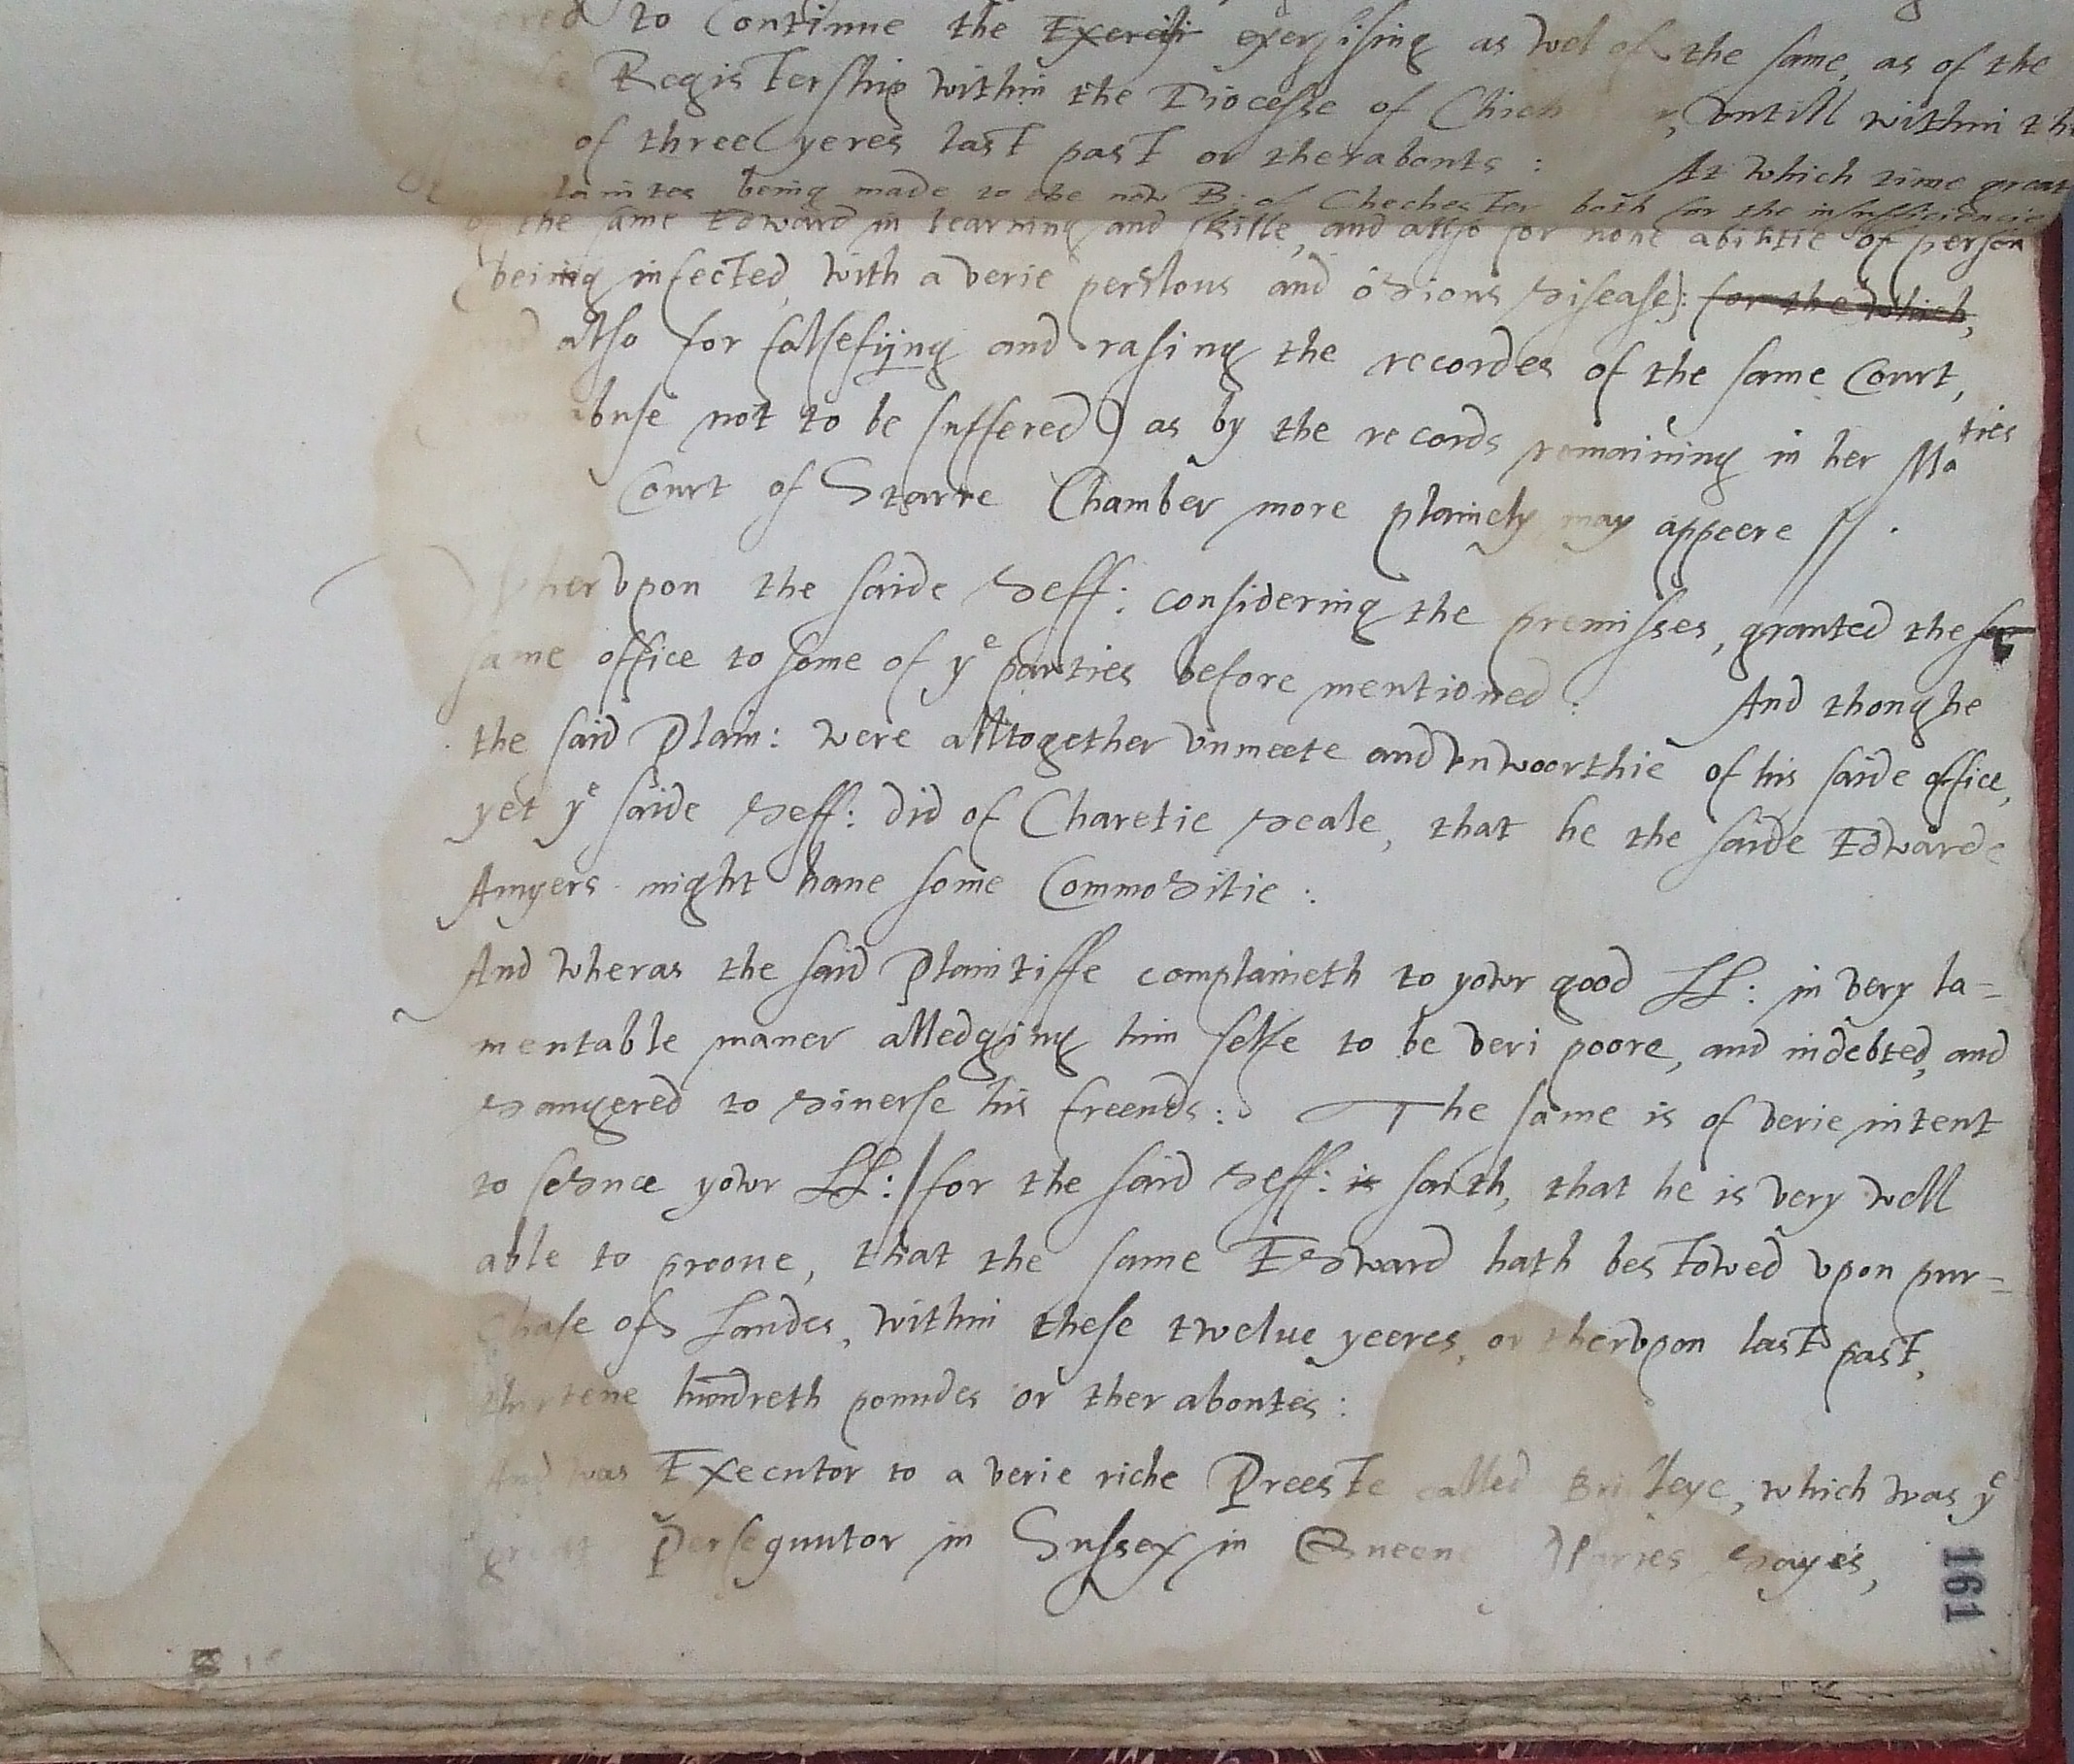 to Continue the Exercisi exersising as wel of the same, as of the
Registership within the Diocesse of Chich vntill within the
of three yeres last past or therabouts : At which time great
being made to the now B: of Chechester both for the insufficiencie
of the same Edward in learning and skille, and also for none abilitie of person
(being infected with a verie perilous and odious disease): for the which,
and also for falsefijng and rasing the recordes of the same Court,
abuse not to be suffered) as by the records remaining in her Maties
Court of Starre Chamber more plainely may appeere //.
Whervpon the saide deff: considering the premisses, granted the sa
same office to some of ye parties before mentioned : And thoughe
the said Plain: were alltogether vnmeete and vnwoorthie of his saide office,
yet ye saide deff: did of Charetie deale, that he the saide Edwarde
Amyers might haue some Commoditie :
And wheras the said Plaintiffe complaineth to yowr good LL: in very la=
mentable maner alledging him selfe to be veri poore, and indebted, and
daungered to diuerse his freends: The same is of verie intent
to seduce yowr LL: / for the said deff: is saith, that he is very well
able to prooue, that the same Edward hath bestowed vpon pur=
chase of Landes, within these twelue yeeres, or thervpon last past,
thirtene hundreth poundes or theraboutes :
And was Executor to a verie riche Preeste called which was ye
great Persequutor in Sussex in Queene Maries dayes,
161